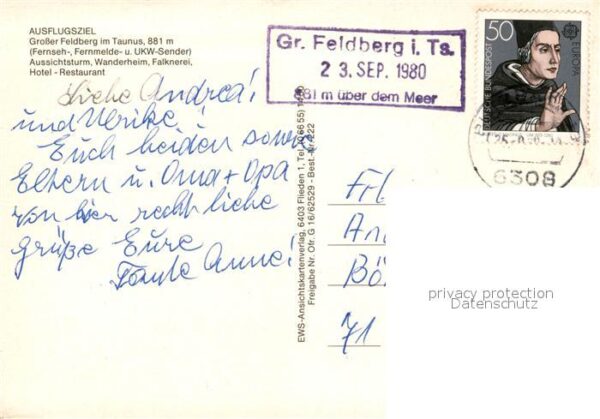 AUSFLUGSZIEL
Großer Feldberg im Taunus, 881 m
(Fernseh-, Fernmelde- u. UKW-Sender)
Aussichtsturm, Wanderheim, Falknerei,
Hotel - Restaurant
Gr. Feldberg i. Ts.
2 3. SEP. 1980
881 m über dem Meer
50
EUROPA
DEUTSCHE BUNDESPOST
6308
Liebe Andrea!
und Ulrike!
Euch beiden sowie
Eltern u. Oma + Opa
von hier recht liebe
Grüße Eure
Tante Anne!
EWS-Ansichtskartenverlag, 6403 Flieden 1, Tel. (0 66 55)
Freigabe Nr. Ofr. G 16/62529 - Best.-Nr.
Frl
An
Bö
71
privacy protection
Datenschutz